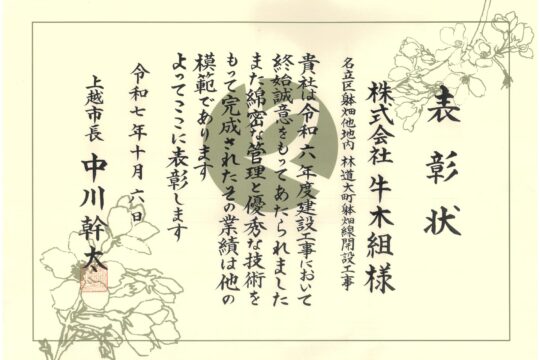 表彰状
株式会社 牛木組様
名立区躰畑他地内 林道大町躰畑線開設工事
貴社は令和六年度建設工事において
終始誠意をもってあたられました
また綿密な管理と優秀な技術を
もって完成されたその業績は他の
模範であります
よってここに表彰します
令和七年十月六日
上越市長 中川幹太